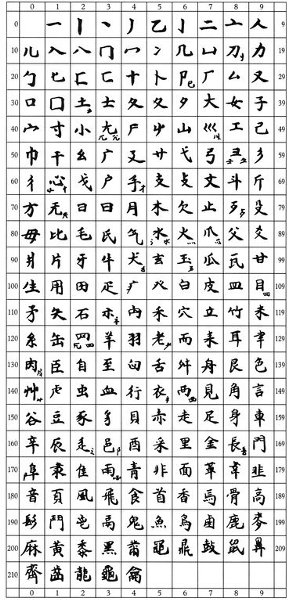 0 1 2 3 4 5 6 7 8 9
0 一 丨 丶 丿 乙 亅 二 亠 人 9
10 儿 入 八 冂 冖 冫 几 凵 刀刂 力 19
20 勹 匕 匚 匸 十 卜 卩㔾 厂 厶 又 29
30 口 囗 土 士 夂 夊 夕 大 女 子 39
40 宀 寸 小 尢 尸 屮 山 巛 工 己 49
50 巾 干 幺 广 廴 廾 弋 弓 彐 彡 59
60 彳 心忄 戈 戶 手扌 支 攴攵 文 斗 斤 69
70 方 无 日 曰 月 木 欠 止 歹 殳 79
80 毋 比 毛 氏 气 水氵 火灬 爪爫 父 爻 89
90 爿 片 牙 牛 犬犭 玄 玉王 瓜 瓦 甘 99
100 生 用 田 疋 疒 癶 白 皮 皿 目 109
110 矛 矢 石 示礻 禸 禾 穴 立 竹 米 119
120 糸 缶 网 羊 羽 老 而 耒 耳 聿 129
130 肉 臣 自 至 臼 舌 舛 舟 艮 色 139
140 艸艹 虍 虫 血 行 衣衤 襾 見 角 言 149
150 谷 豆 豕 豸 貝 赤 走 足 身 車 159
160 辛 辰 辵 邑阝 酉 釆 里 金 長 門 169
170 阜阝 隶 隹 雨 青 非 面 革 韋 韭 179
180 音 頁 風 飛 食 首 香 馬 骨 高 189
190 髟 鬥 鬯 鬲 鬼 魚 鳥 鹵 鹿 麥 199
200 麻 黃 黍 黑 黹 黽 鼎 鼓 鼠 鼻 209
210 齊 齒 龍 龜 龠